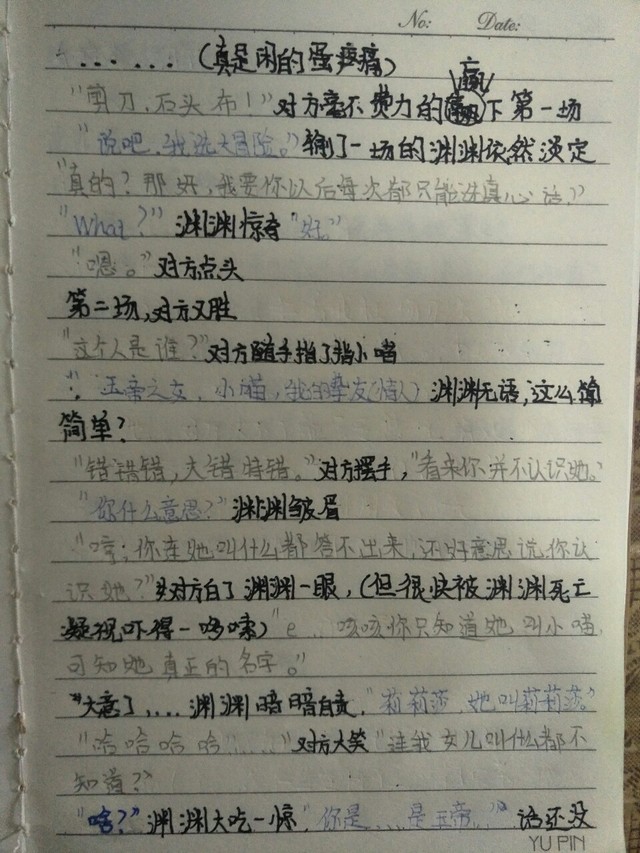 No: Date:
......(真是闲的蛋疼痛)
"剪刀、石头布!"对方毫不费力的赢下第一场
"说吧,我选大冒险。"输了一场的渊渊依然淡定
"真的?那好,我要你以后每次都只能选真心话,"
"What?"渊渊惊奇"好。"
"嗯。"对方点头
第二场,对方又胜
"这个人是谁?"对方随手指了指小喵
":王帝之女,小喵,我的挚友(情人)渊渊无语,这么简
简单?
"错错错,大错特错。"对方摆手,"看来你并不认识她。"
"你什么意思?"渊渊皱眉
"哼;你连她叫什么都答不出来,还好意思说你认
识她?"对方白了渊渊一眼,(但很快被渊渊死亡
凝视吓得一哆嗦)"e...咳咳你只知道她叫小喵,
可知她真正的名字。"
"大意了....渊渊暗暗自责,"莉莉莎,她叫莉莉莎。"
"哈哈哈哈....."对方大笑"连我女儿叫什么都不
知道?"
"啥?"渊渊大吃一惊,"你是...是王帝.."话还没
YU PIN